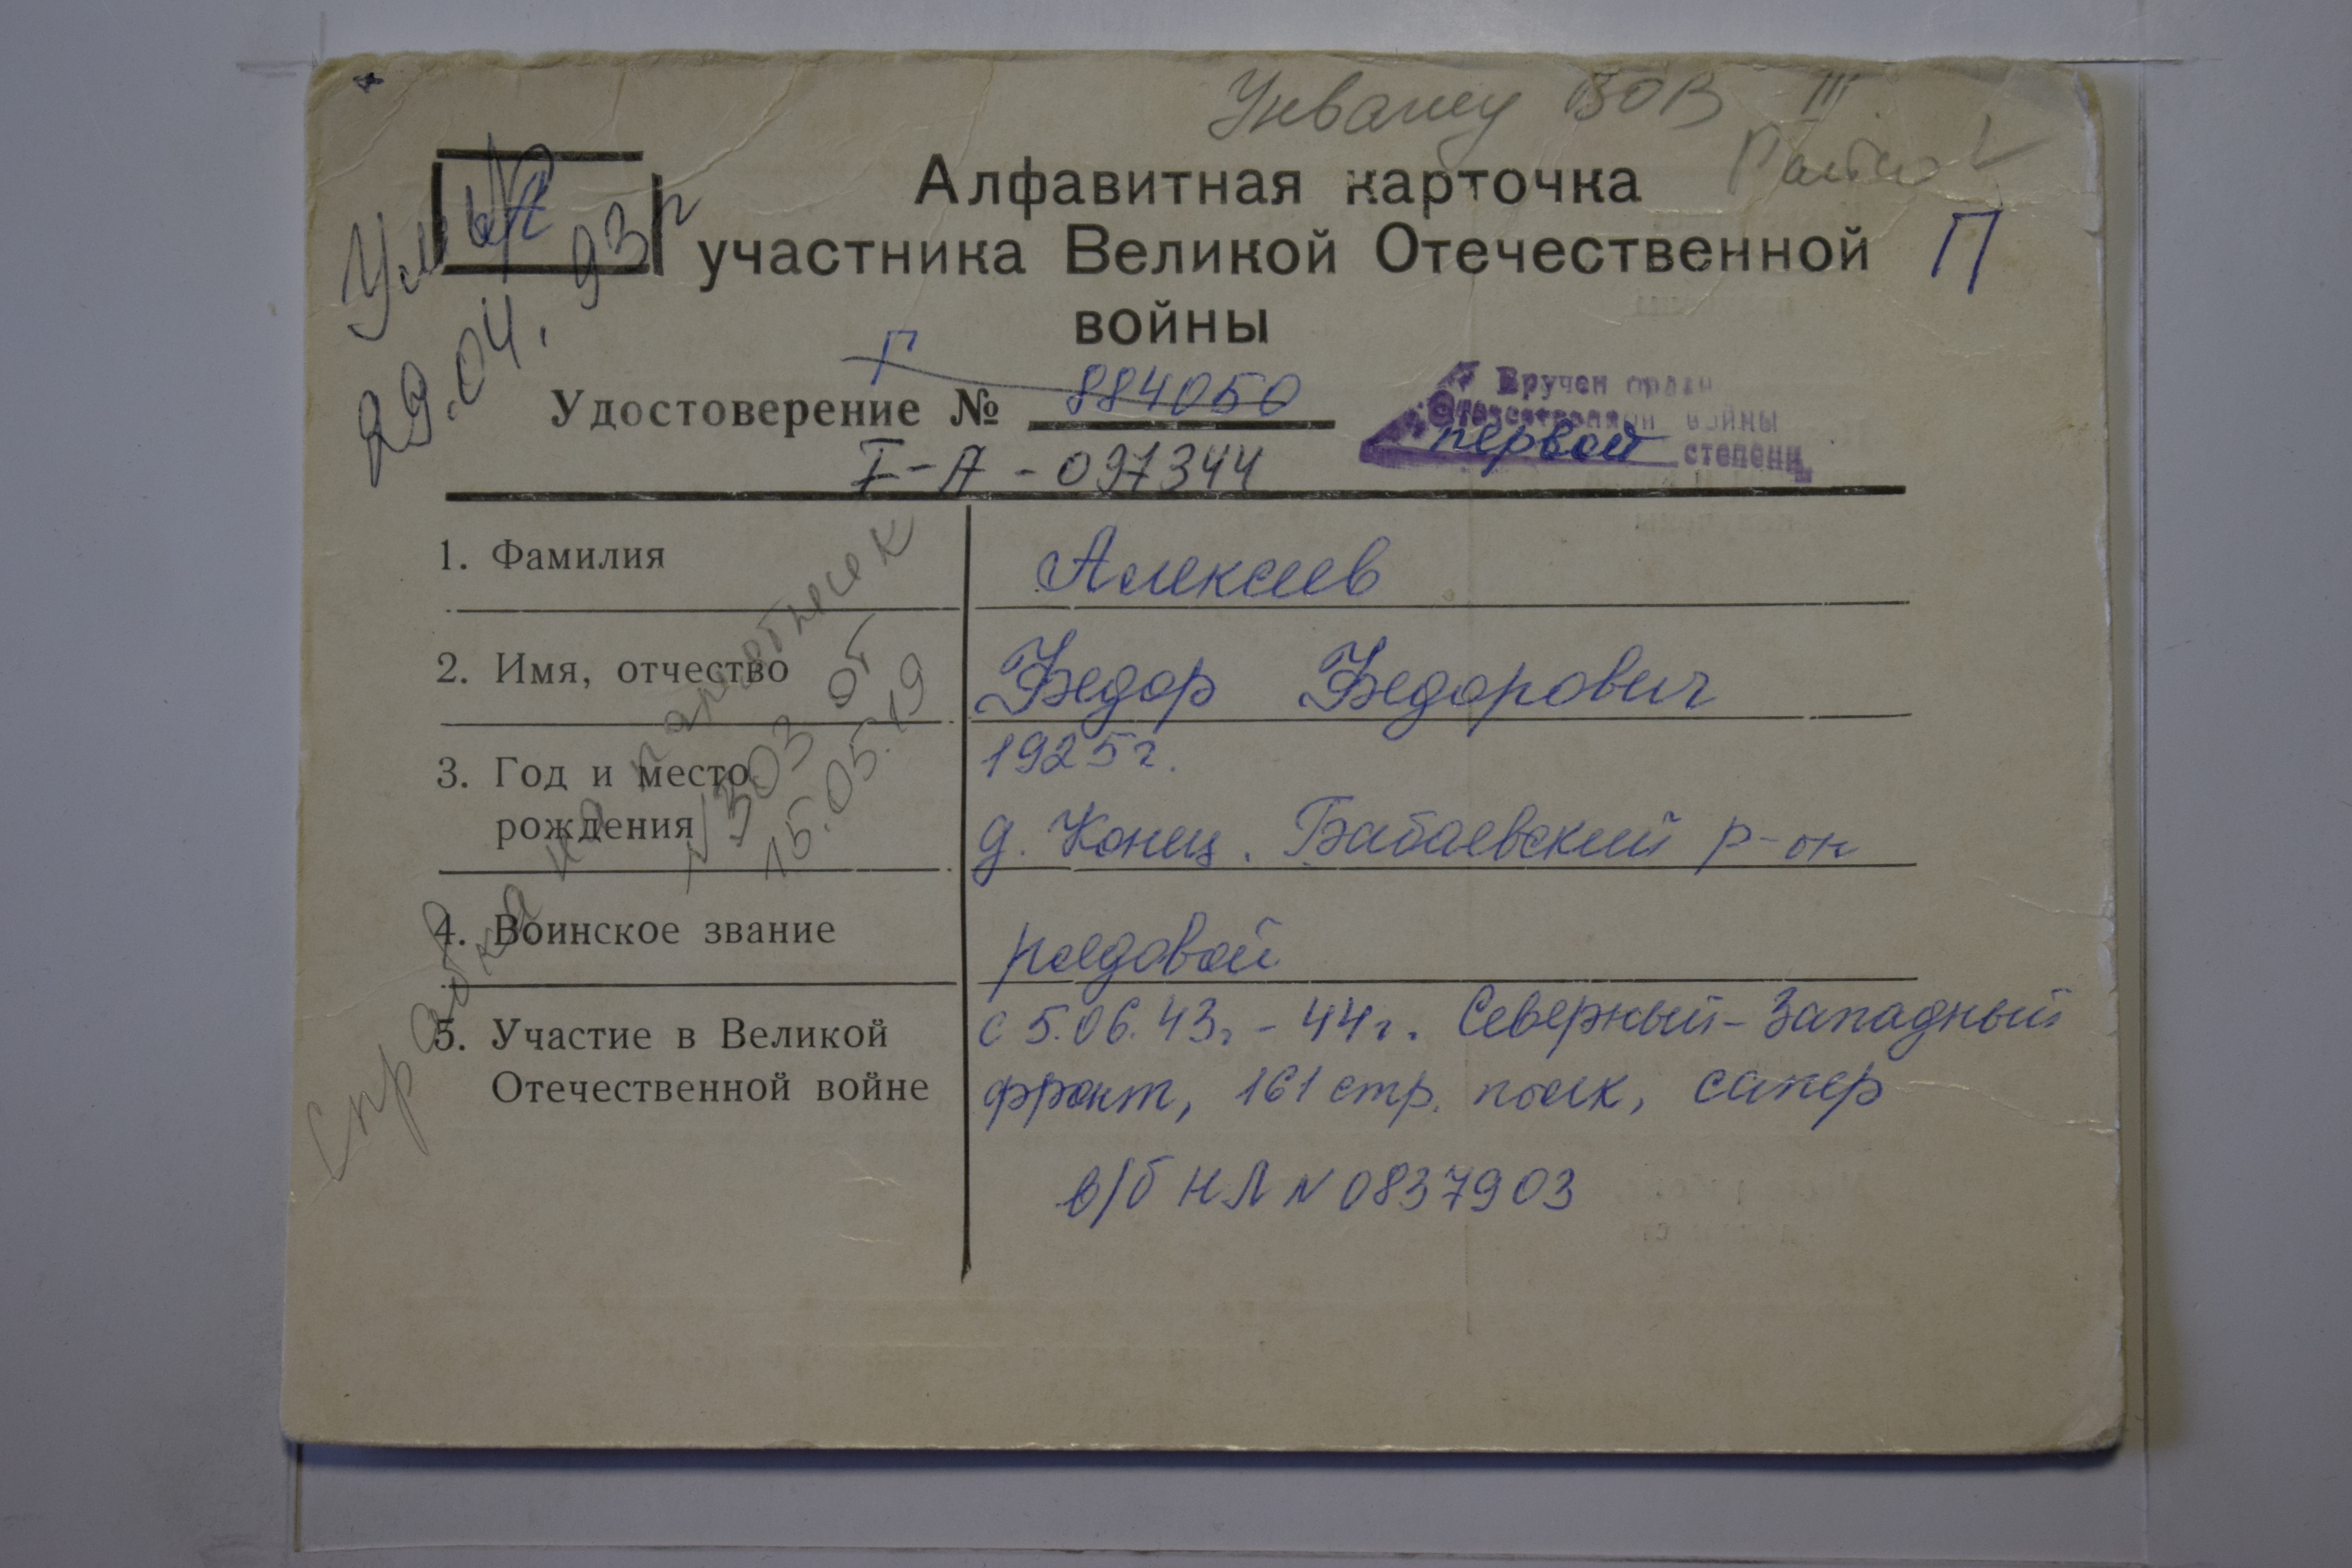 Инвалид ВОВ III
Алфавитная карточка
участника Великой Отечественной
войны
П
Умер
29.04.93г
Г
Удостоверение № 884050
I-А-097344
Вручен орден
Отечественной войны
первой степени
1. Фамилия Алексеев
2. Имя, отчество Федор Федорович
3. Год и место 1925г.
рождения д. Конец. Бабаевский р-он
4. Воинское звание рядовой
5. Участие в Великой с 5.06.43г - 44г. Северный-Западный
Отечественной войне фронт, 161 стр. полк, сапер
в/б НЛ № 0837903
Справка на
№303 от
15.05.19